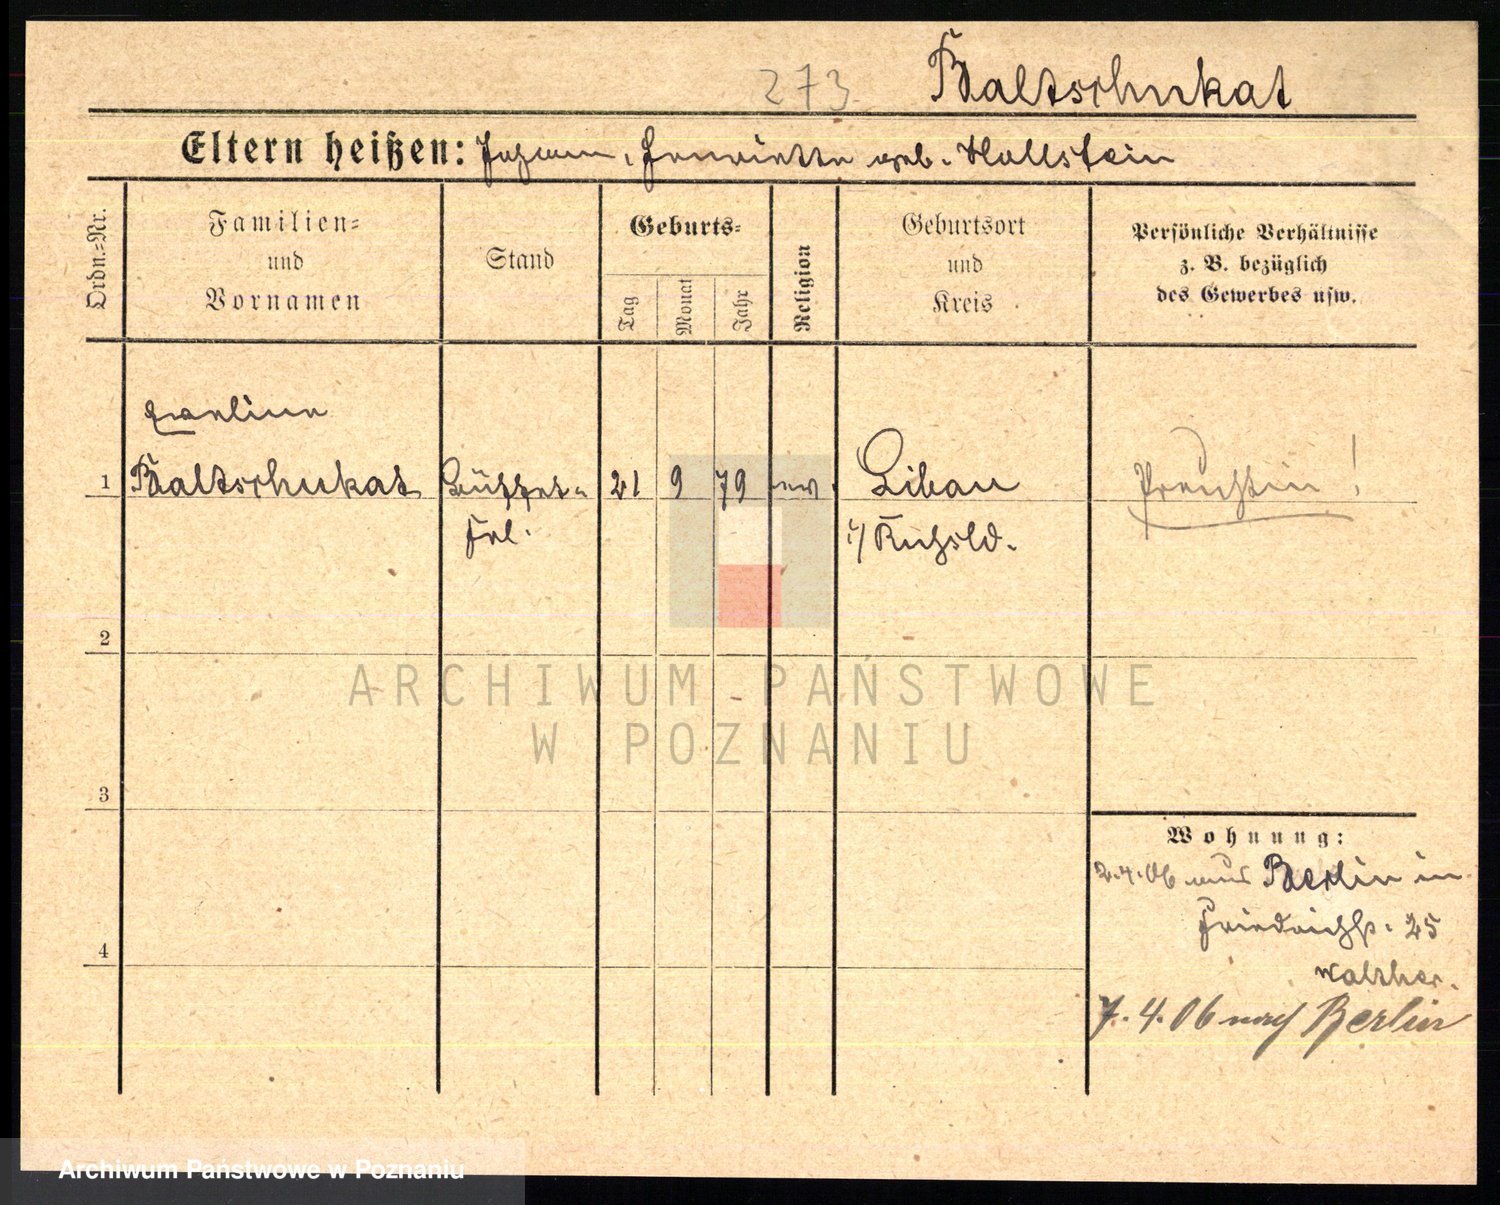 273 Baltschukat
Eltern heißen: Johann, Henriette geb. Hallstein
Ordn.=Nr.
Familien=
und
Vornamen
Stand
Geburts=
Tag
Monat
Jahr
Religion
Geburtsort
und
Kreis
Persönliche Verhältnisse
z. B. bezüglich
des Gewerbes usw.
1 Baltschukat Büffet= 21 9 79 ev. Libau Preußin!
Frl. i/ Rußld.
2
ARCHIWUM PAŃSTWOWE
W POZNANIU
3
Wohnung:
2.4.06 aus Berlin in
Friedrichst. 25
Walther.
4
7.4.06 nach Berlin
Archiwum Państwowe w Poznaniu